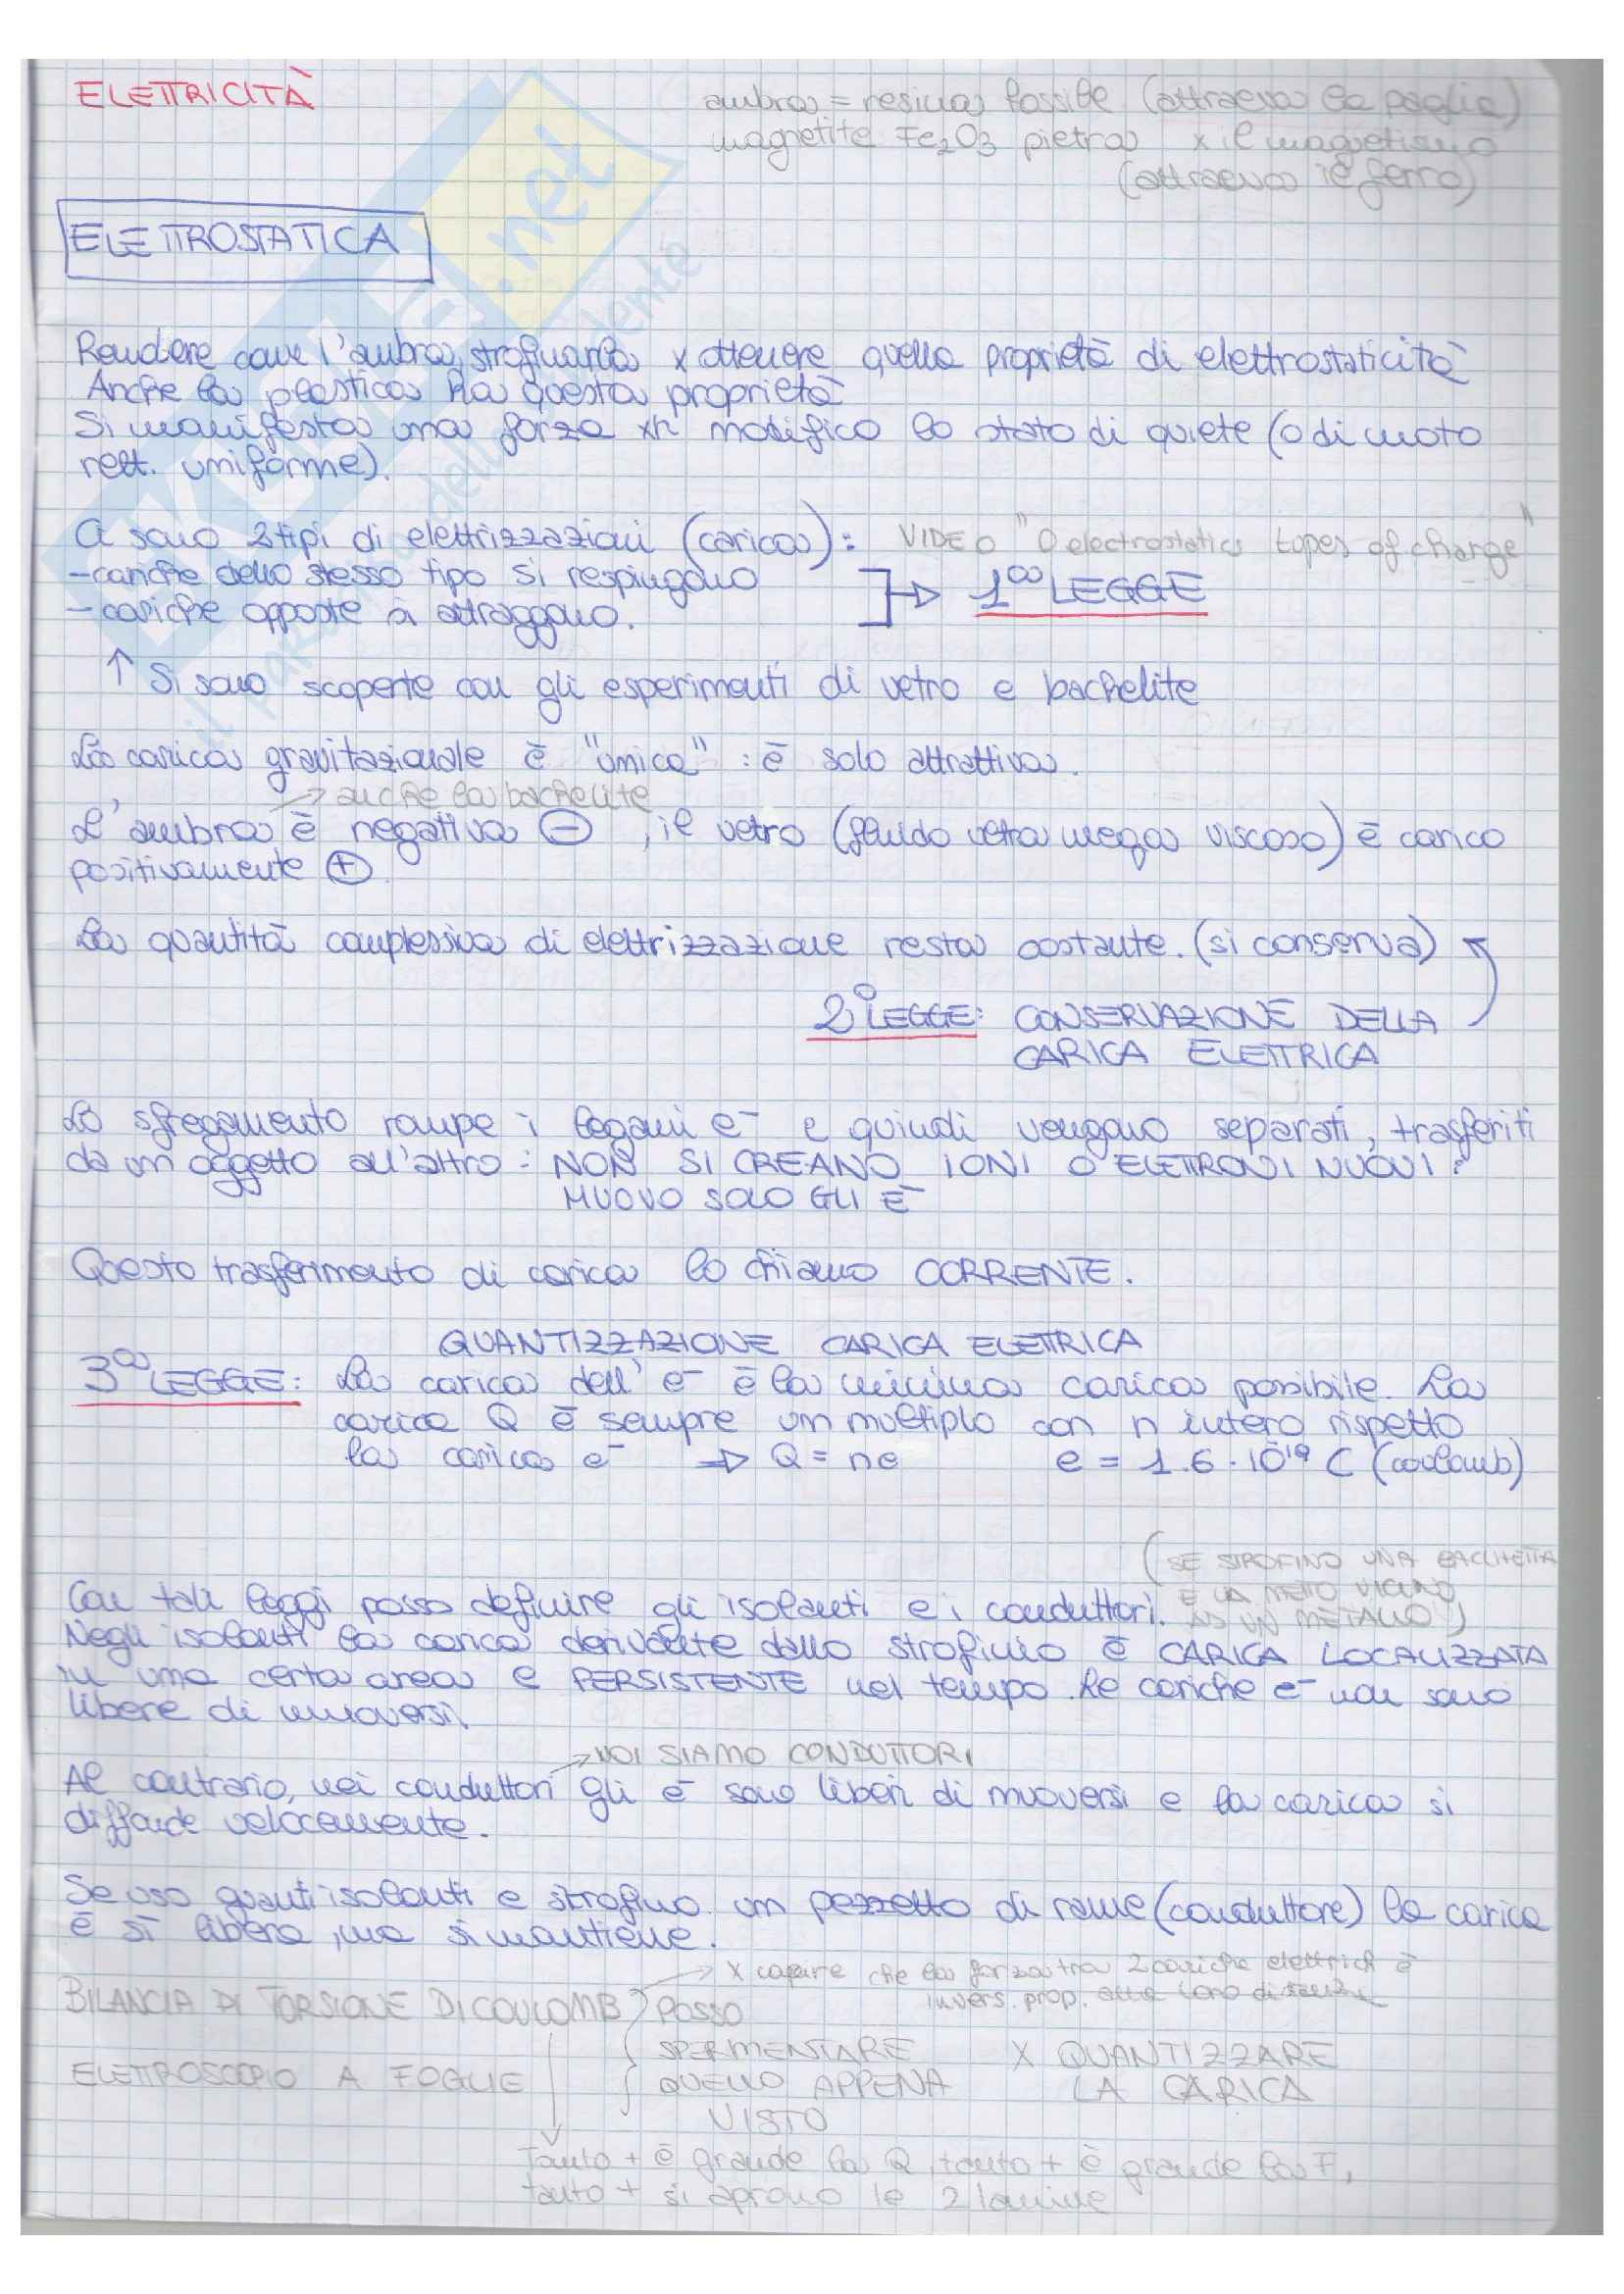 ELETTRICITÀ
ambra = resina fossile (attraeva la paglia)
magnetite Fe2O3 pietra x il magnetismo
(attraeva il ferro)
ELETTROSTATICA
Rendere come l'ambra, strofinarla x ottenere quella proprietà di elettrostaticità
Anche la plastica ha questa proprietà
Si manifesta una forza xk modifico lo stato di quiete (o di moto
rett. uniforme).
Ci sono 2 tipi di elettrizzazioni (carica): VIDEO "electrostatics types of charge"
- cariche dello stesso tipo si respingono
- cariche opposte si attraggono.
1° LEGGE
↑ Si sono scoperte con gli esperimenti di vetro e bachelite
La carica gravitazionale è "unica": è solo attrattiva.
→ anche la bachelite
L'ambra è negativa ⊖, il vetro (fluido ultra mega viscoso) è carico
positivamente ⊕.
La quantità complessiva di elettrizzazione resta costante. (si conserva)
2° LEGGE: CONSERVAZIONE DELLA
CARICA ELETTRICA
Lo sfregamento rompe i legami e⁻ e quindi vengono separati, trasferiti
da un oggetto all'altro: NON SI CREANO IONI O ELETTRONI NUOVI:
MUOVO SOLO GLI e⁻
Questo trasferimento di carica lo chiamo CORRENTE.
QUANTIZZAZIONE CARICA ELETTRICA
3° LEGGE: La carica dell' e⁻ è la minima carica possibile. La
carica Q è sempre un multiplo con n intero rispetto
la carica e⁻ ⇒ Q = ne e = 1.6 · 10⁻¹⁹ C (coulomb)
(SE STROFINO UNA BACCHETTA
E LA METTO VICINO
AD UN METALLO)
Con tali leggi posso definire gli isolanti e i conduttori.
Negli isolanti la carica derivante dallo strofinio è CARICA LOCALIZZATA
su una certa area e PERSISTENTE nel tempo. Le cariche e⁻ non sono
libere di muoversi.
→ NOI SIAMO CONDUTTORI
Al contrario, nei conduttori gli e⁻ sono liberi di muoversi e la carica si
diffonde velocemente.
Se uso guanti isolanti e strofino un pezzetto di rame (conduttore) la carica
è sì libera, ma si mantiene.
→ x capire che la forza tra 2 cariche elettrich è
invers. prop. alla loro distanza
BILANCIA DI TORSIONE DI COULOMB
ELETTROSCOPIO A FOGLIE
POSSO
SPERMENTARE
QUELLO APPENA
VISTO
X QUANTIZZARE
LA CARICA
Tanto + è grande la Q, tanto + è grande la F,
tanto + si aprono le 2 lamine